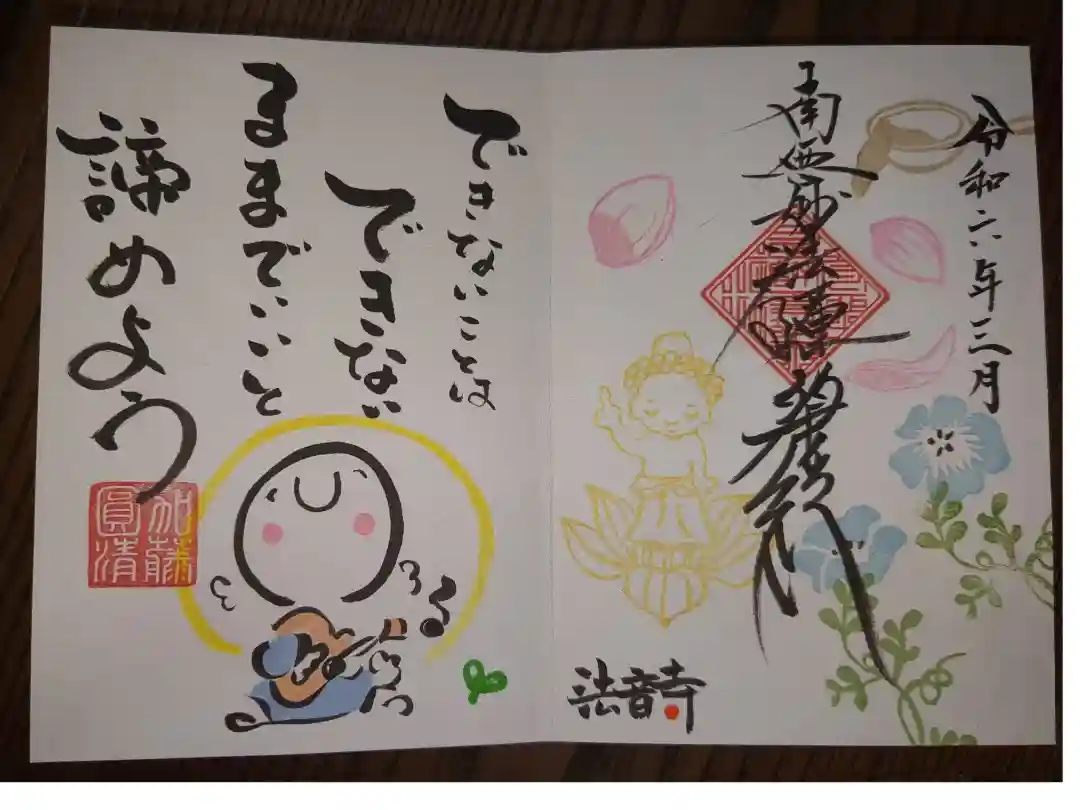 令和六年三月
南無妙法蓮華経
法音寺
できないことは
できない
ままでいいと
諦めよう
加藤
圓清